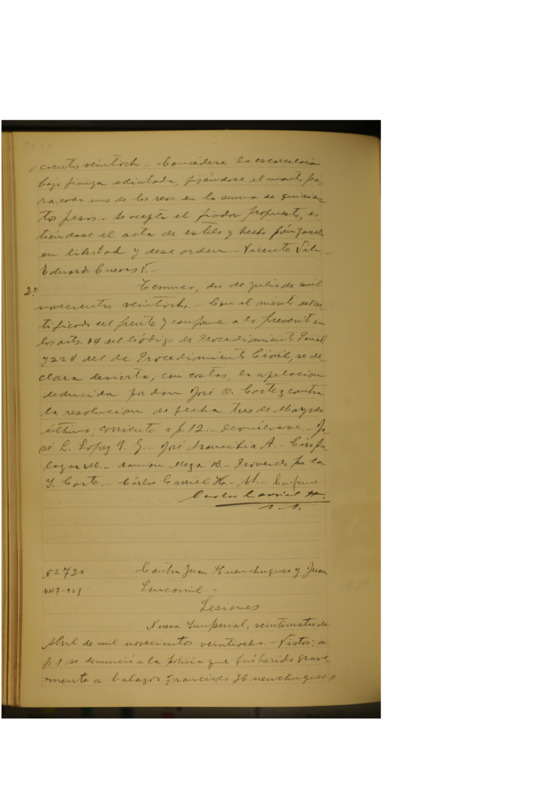 cientos veintiocho.- Concédese la excarcelación
bajo fianza solicitada, fijándose el monto pa-
ra cada uno de los reos en la suma de quinien-
tos pesos.- Se acepta el fiador propuesto, ex-
tiéndase el acta de estilo y hecho póngansele
en libertad y dese orden.- Vicente Vila-
Eduardo Cuevas V.-
2º Temuco, dos de julio de mil
novecientos veintiocho.- Con el mérito del cer-
tificado del frente y conforme a lo prevenido en
los arts. 14 del Código de Procedimiento Penal
y 224 del de Procedimiento Civil, se de-
clara desierta, con costas, la apelación
deducida por don José Cortez contra
la resolución de fecha tres de Mayo
último, corriente a f. 12.- Devuélvase.- Jo-
sé L. Lopez José A.-
Ramon Meza Proveido por la
I. Corte.- Cárlos
Carlos
S. S.
Nº 720 Contra Juan Huenchuqueo y Juan
Lesiones
Nueva Imperial, de
Abril de mil novecientos veintiocho.- Vistos: a
f. 1 se denunció a la policía que fué herido grave-
mente a balazos Francisco Huenchuqueo